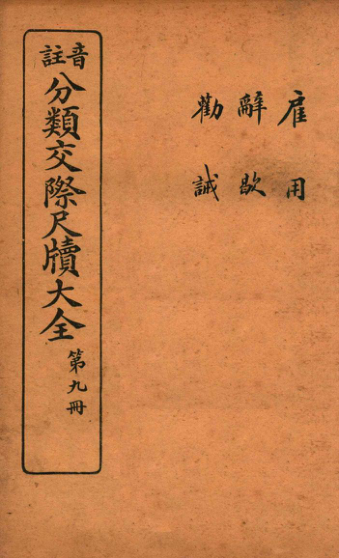 雇用
辭歇
勸誡
音註
分類交際尺牘大全
第九冊